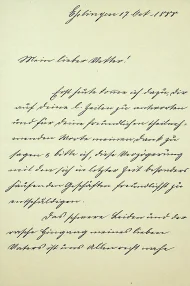 Esslingen 17 Oct. 1888
Mein lieber Vetter!
Erst heute komme ich dazu, Dir
auf deine l. Zeilen zu antworten
und für deine freundlichen theilneh-
menden Worte meinen Dank zu
sagen & bitte ich, diese Verzögerung
mit den sich in letzter Zeit besonders
häufenden Geschäften freundlichst zu
entschuldigen.
Das schwere Leiden und der
rasche Hingang meines lieben
Vaters ist uns Allen recht nahe